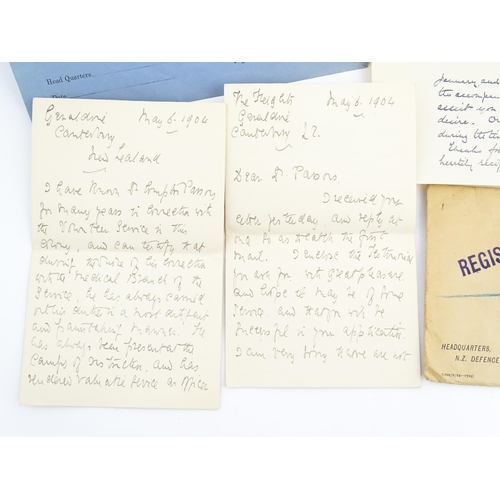 Head Quarters
Date
Geraldine May 6. 1904
Canterbury
New Zealand
I have known Dr
for many years in connection with
the Volunteer Service in this
Colony, and can testify that
during the whole of his connection
with the Medical Branch of the
Service, he has always carried
out his duties in a most
and manner. He
has always been present at the
Camps of Instruction, and has
rendered valuable service as Officer
The Heights May 6. 1904
Geraldine
Canterbury NZ.
Dear Dr
I received your
letter yesterday and reply at
once to catch the first
mail. I enclose the testimonial
you ask for with great pleasure
and hope it may be of some
service, and that you will be
successful in your application.
I am very sorry I have not
January and
the accompan
assist you
desire. Or
during the ti
Thanks for
heartily recip
REGIS
HEADQUARTERS,
N.Z. DEFENCE